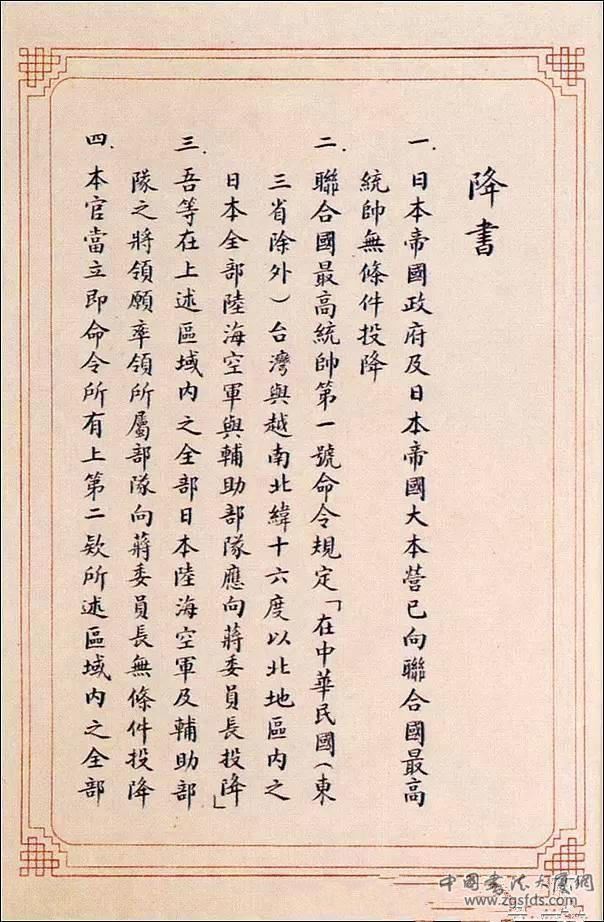 降書
一. 日本帝國政府及日本帝國大本營已向聯合國最高
統帥無條件投降
二. 聯合國最高統帥第一號命令規定「在中華民國(東
三省除外)台灣與越南北緯十六度以北地區內之
日本全部陸海空軍與輔助部隊應向蔣委員長投降」
三. 吾等在上述區域內之全部日本陸海空軍及輔助部
隊之將領願率領所屬部隊向蔣委員長無條件投降
四. 本官當立即命令所有上第二欵所述區域內之全部
中國書法大廈網
www.zgsfds.com